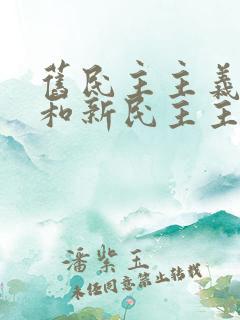 舊民主主義
和新民主主
潘紫玉
未经同意禁止转载